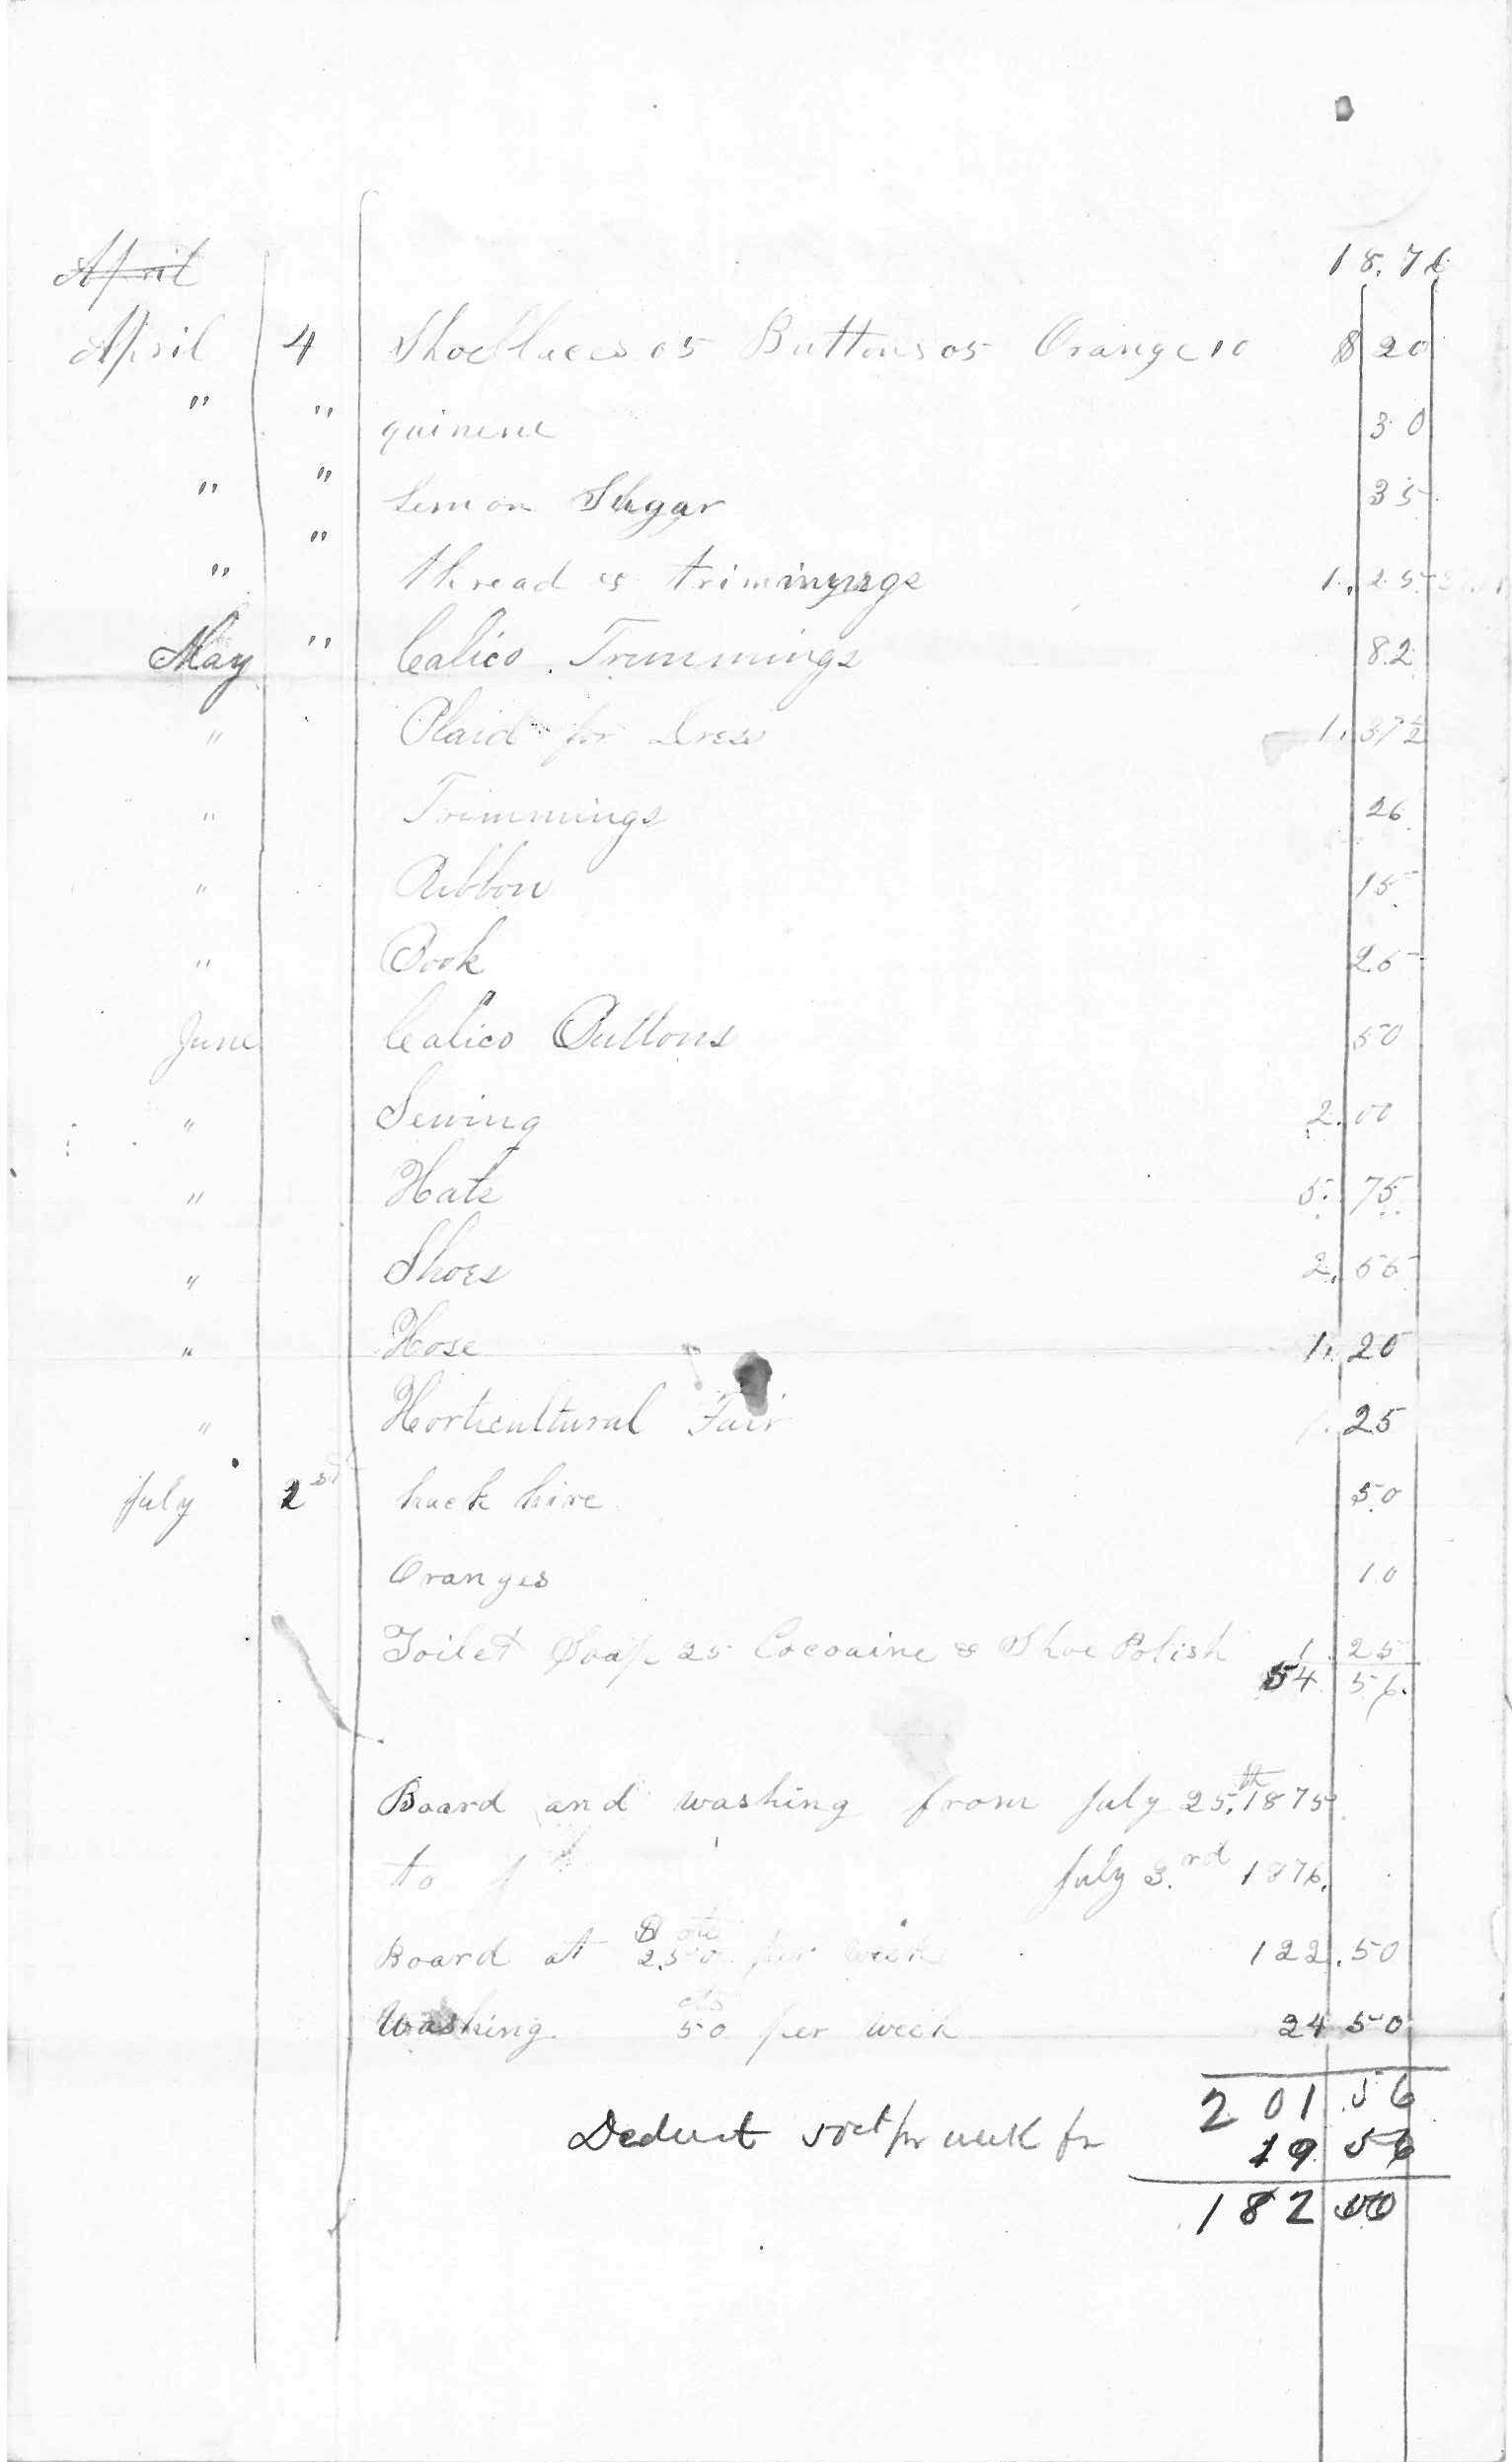 18.76
April
April 4 Shoelaces 05 Buttons 05 Orange 10 $ 20
" " quinine 30
" " Lemon Sugar 35
" " thread & trimings 1.25
May " Calico Trimmings 82
" Plaid for Dress 1.37½
" Trimmings 26
" Ribbon 15
" Book 25
June Calico Buttons 50
" Sewing 2.00
" Hats 5.75
" Shoes 2.
" Hose 1.20
" Horticultural Fair 25
July hack hire 50
Oranges 10
Toilet Soap 25 Cocoaine & Shoe Polish 1.25
54 56
Board and washing from July 25.th 1875
to July 3.rd 1876.
Board at $ 2.50 cts per week 122.50
Washing 50 cts per week 24 50
201.56
Deduct 50ct pr week fr 19 56
182 00